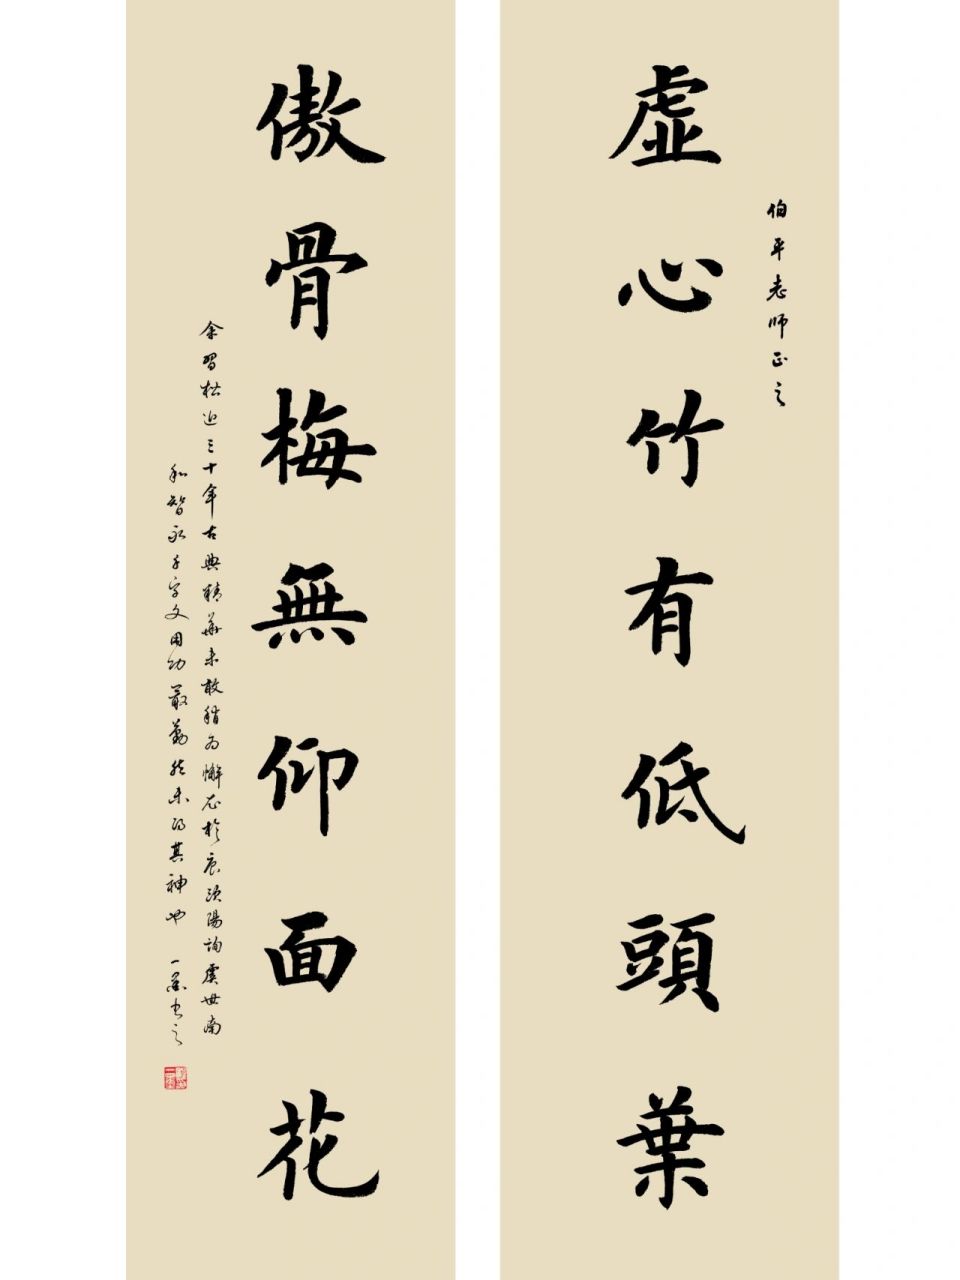 伯平老师正之
虛心竹有低頭葉
傲骨梅無仰面花
余習楷近三十年古典精華未敢稍为懈尤於欧陽詢虞世南
和智永千字文用功最勤然未得其神也 一墨书之